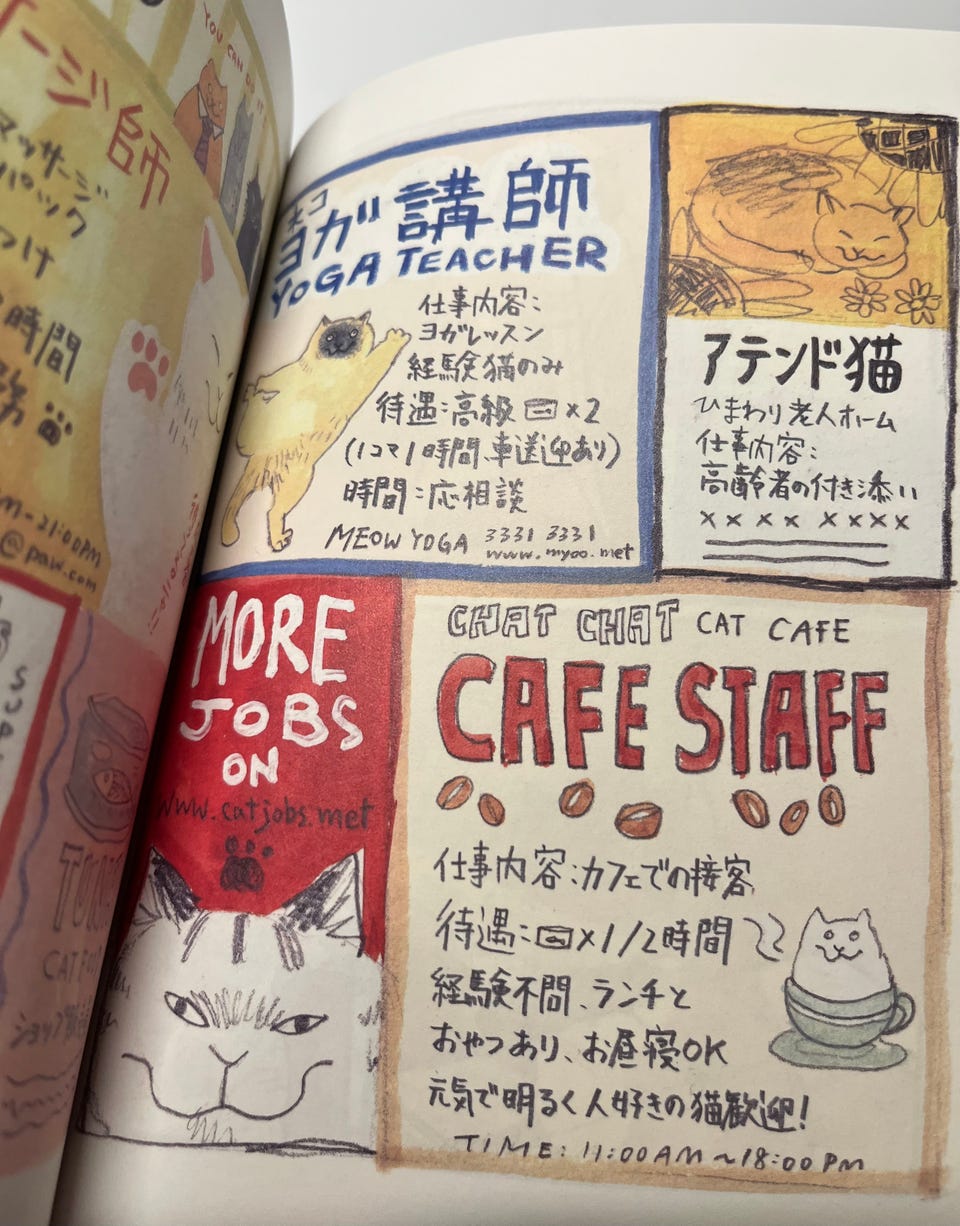 ージ師
マッサージ
パック
つけ
時間
務
M-21:00PM
@paw.com
YOU CAN DO IT
SUP
CAT FOO
ショップ
ネコ
ヨガ講師
YOGA TEACHER
仕事内容:
ヨガレッスン
経験猫のみ
待遇:高級 ×2
(1コマ1時間、車送迎あり)
時間:応相談
MEOW YOGA 3331 3331
www.myoo.met
アテンド猫
ひまわり老人ホーム
仕事内容:
高齢者の付き添い
×××× ××××
MORE
JOBS
ON
www.catjobs.met
CHAT CHAT CAT CAFE
CAFE STAFF
仕事内容:カフェでの接客
待遇: ×1/2時間
経験不問、ランチと
おやつあり、お昼寝OK
元気で明るく人好きの猫歓迎!
TIME: 11:00AM~18:00PM